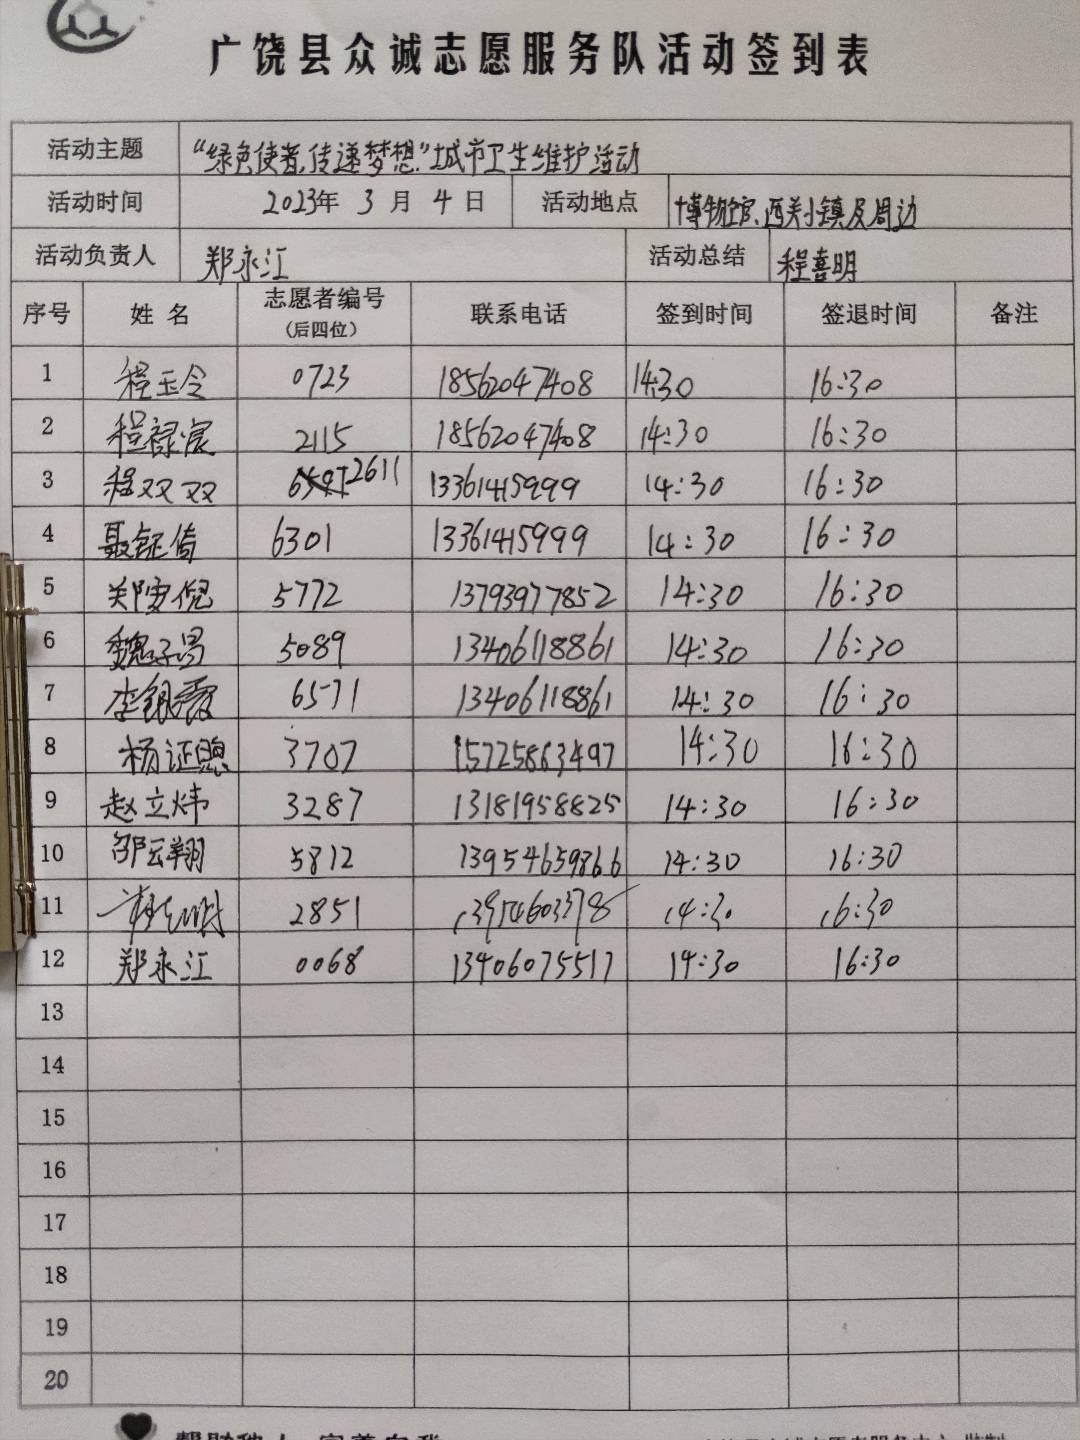 广饶县众诚志愿服务队活动签到表
活动主题 “绿色使者,传递梦想”城市卫生维护活动
活动时间 2023年 3 月 4 日 活动地点 博物馆、西关小镇及周边
活动负责人 郑永江 活动总结 程喜明
序号 姓 名 志愿者编号 (后四位) 联系电话 签到时间 签退时间 备注
1 程玉令 0723 18562047408 14:30 16:30
2 程禄宸 2115 18562047408 14:30 16:30
3 程双双 2611 13361415999 14:30 16:30
4 聂钰倚 6301 13361415999 14:30 16:30
5 郑安倪 5772 13793977852 14:30 16:30
6 魏子昂 5089 13406118861 14:30 16:30
7 李银霞 6571 13406118861 14:30 16:30
8 杨证 3707 15725863497 14:30 16:30
9 赵立炜 3287 13181958825 14:30 16:30
10 邵云翔 5812 13954659866 14:30 16:30
11 2851 14:30 16:30
12 郑永江 0068 13406075517 14:30 16:30
13
14
15
16
17
18
19
20